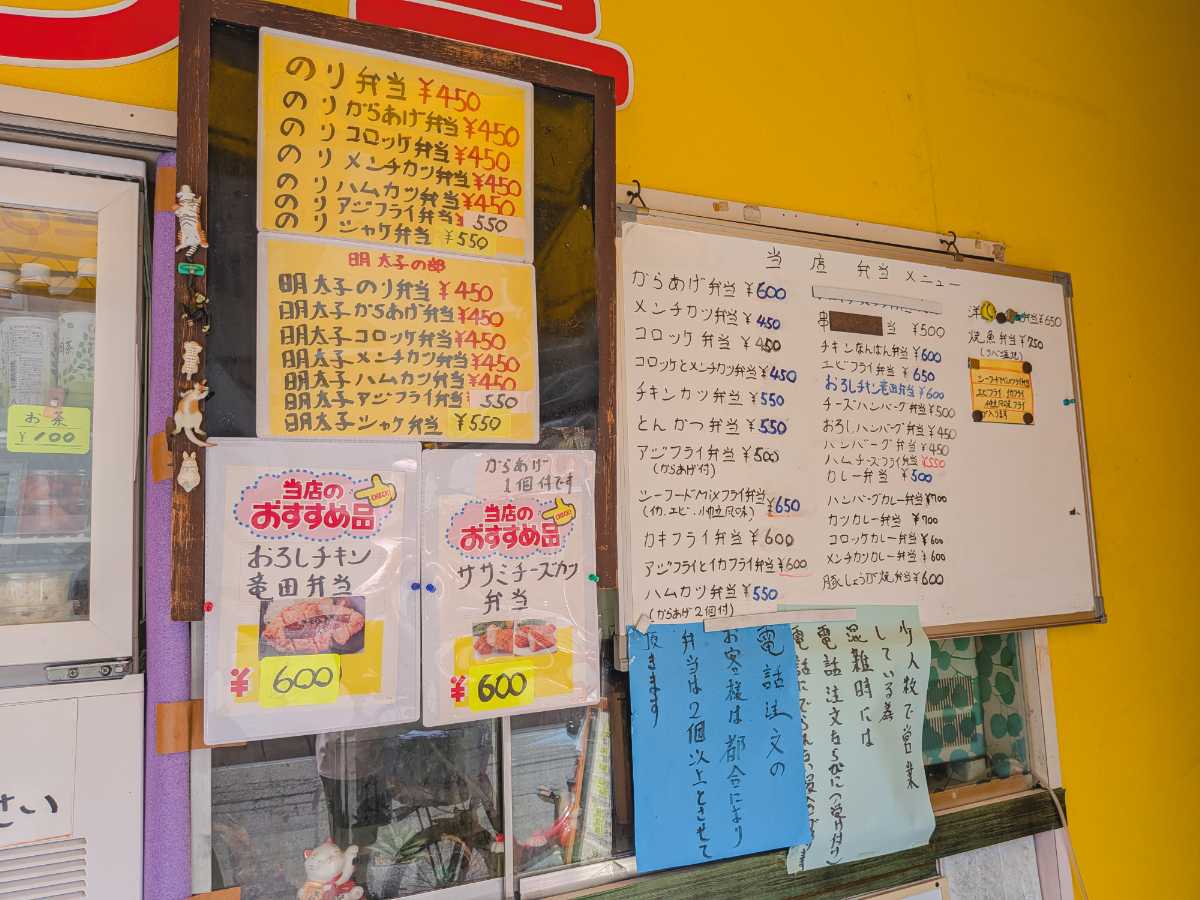 のり弁当 ¥450
のりからあげ弁当 ¥450
のりコロッケ弁当 ¥450
のりメンチカツ弁当 ¥450
のりハムカツ弁当 ¥450
のりアジフライ弁当 550
のりシャケ弁当 ¥550
明太子の部
明太子のり弁当 ¥450
明太子からあげ弁当 ¥450
明太子コロッケ弁当 ¥450
明太子メンチカツ弁当 ¥450
明太子ハムカツ弁当 ¥450
明太子アジフライ弁当 550
明太子シャケ弁当 ¥550
お茶
¥100
当店の
おすすめ品
CHECK!
おろしチキン
竜田弁当
¥600
からあげ
1個付です
当店の
おすすめ品
CHECK!
ササミチーズカツ
弁当
¥600
さい
当店弁当メニュー
からあげ弁当 ¥600
メンチカツ弁当 ¥450
コロッケ弁当 ¥450
コロッケとメンチカツ弁当 ¥450
チキンカツ弁当 ¥550
とんかつ弁当 ¥550
アジフライ弁当 ¥500
(からあげ付)
シーフードMixフライ弁当 ¥650
カキフライ弁当 ¥600
アジフライとイカフライ弁当 ¥600
ハムカツ弁当 ¥550
(からあげ2個付)
串 当 ¥500
チキンなんばん弁当 ¥600
エビフライ弁当 ¥650
おろしチキン竜田弁当 ¥600
チーズハンバーグ弁当 ¥500
おろしハンバーグ弁当 ¥450
ハンバーグ弁当 ¥450
ハムチーズフライ弁当 ¥550
カレー弁当 ¥500
ハンバーグカレー弁当 ¥700
カツカレー弁当 ¥700
コロッケカレー弁当 ¥600
メンチカツカレー弁当 ¥600
豚しょうが焼弁当 ¥600
洋 弁当 ¥650
焼魚弁当 ¥750
シーフードMixフライ弁当
エビフライ、イカフライ
が入ります
電話注文の
お客様は都合により
弁当は2個以上とさせて
頂きます
少人数で営業
している為
混雑時には
電話注文
電話にでられない